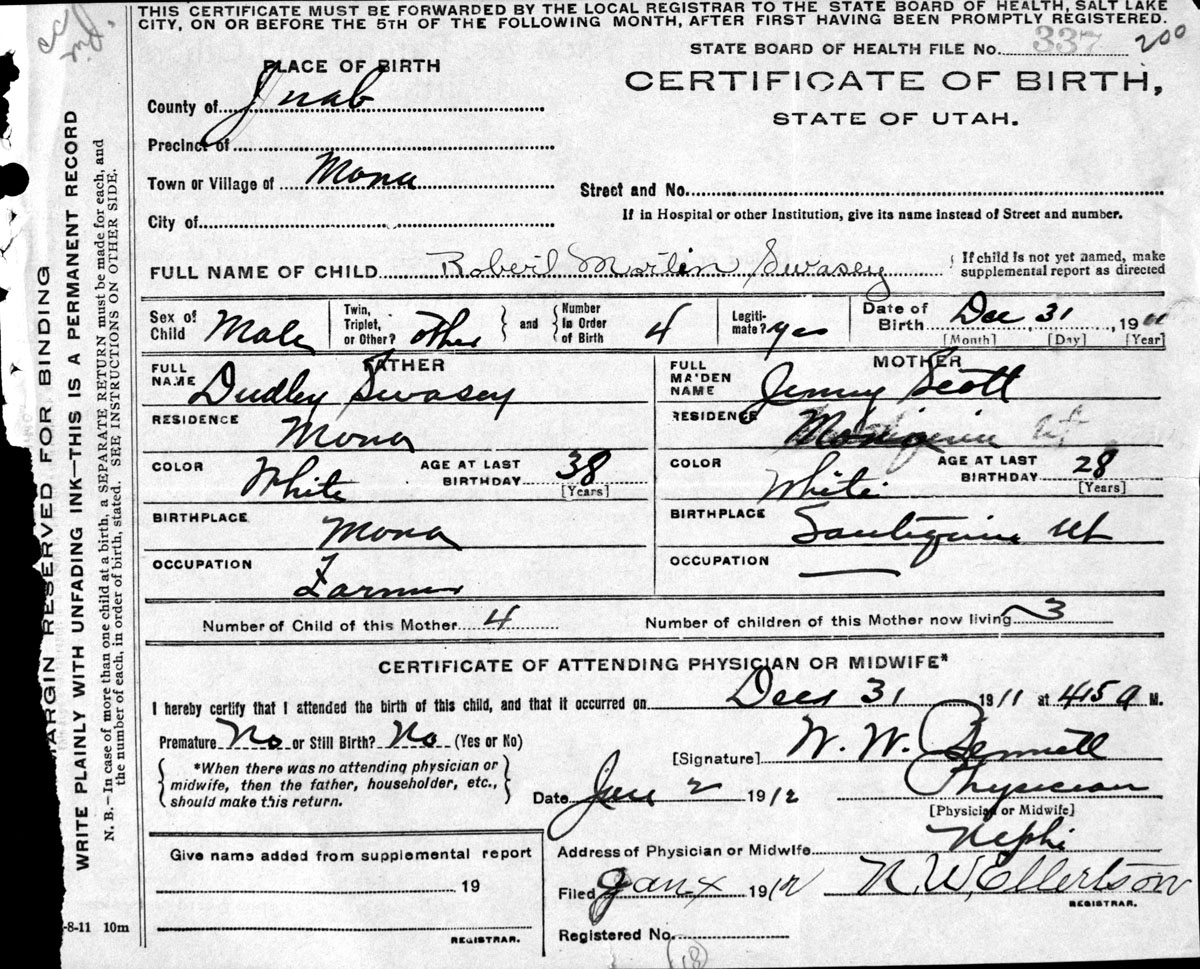 THIS CERTIFICATE MUST BE FORWARDED BY THE LOCAL REGISTRAR TO THE STATE BOARD OF HEALTH, SALT LAKE
CITY, ON OR BEFORE THE 5TH OF THE FOLLOWING MONTH, AFTER FIRST HAVING BEEN PROMPTLY REGISTERED.
STATE BOARD OF HEALTH FILE No. 337 200
PLACE OF BIRTH
CERTIFICATE OF BIRTH,
STATE OF UTAH.
County of Juab
Precinct of
Town or Village of Mona
Street and No.
City of
If in Hospital or other Institution, give its name instead of Street and number.
FULL NAME OF CHILD Robert Martin Swasey
If child is not yet named, make
supplemental report as directed
Sex of Child Male
Twin, Triplet, or Other? other
and
Number In Order of Birth 4
Legiti-mate? yes
Date of Birth Dec 31, 1911
[Month] [Day] [Year]
FATHER
FULL NAME Dudley Swasey
RESIDENCE Mona
COLOR White
AGE AT LAST BIRTHDAY 38
[Years]
BIRTHPLACE Mona
OCCUPATION Farmer
MOTHER
FULL MAIDEN NAME Jenny Scott
RESIDENCE
COLOR White
AGE AT LAST BIRTHDAY 28
[Years]
BIRTHPLACE Santaquin Ut
OCCUPATION
Number of Child of this Mother 4
Number of children of this Mother now living 3
CERTIFICATE OF ATTENDING PHYSICIAN OR MIDWIFE*
I hereby certify that I attended the birth of this child, and that it occurred on Dec 31 1911 at 415 a M.
Premature No or Still Birth? No (Yes or No)
[Signature] W. W. Bennett
*When there was no attending physician or
midwife, then the father, householder, etc.,
should make this return.
Date Jan 2 1912
Physician
[Physician or Midwife]
Address of Physician or Midwife Nephi
Give name added from supplemental report
19
REGISTRAR.
Filed Jan 1912
N. W. Ellertson
REGISTRAR.
Registered No.
18
-8-11 10m
MARGIN RESERVED FOR BINDING
WRITE PLAINLY WITH UNFADING INK—THIS IS A PERMANENT RECORD
N. B.—In case of more than one child at a birth, a SEPARATE RETURN must be made for each, and
the number of each, in order of birth, stated. SEE INSTRUCTIONS ON OTHER SIDE.